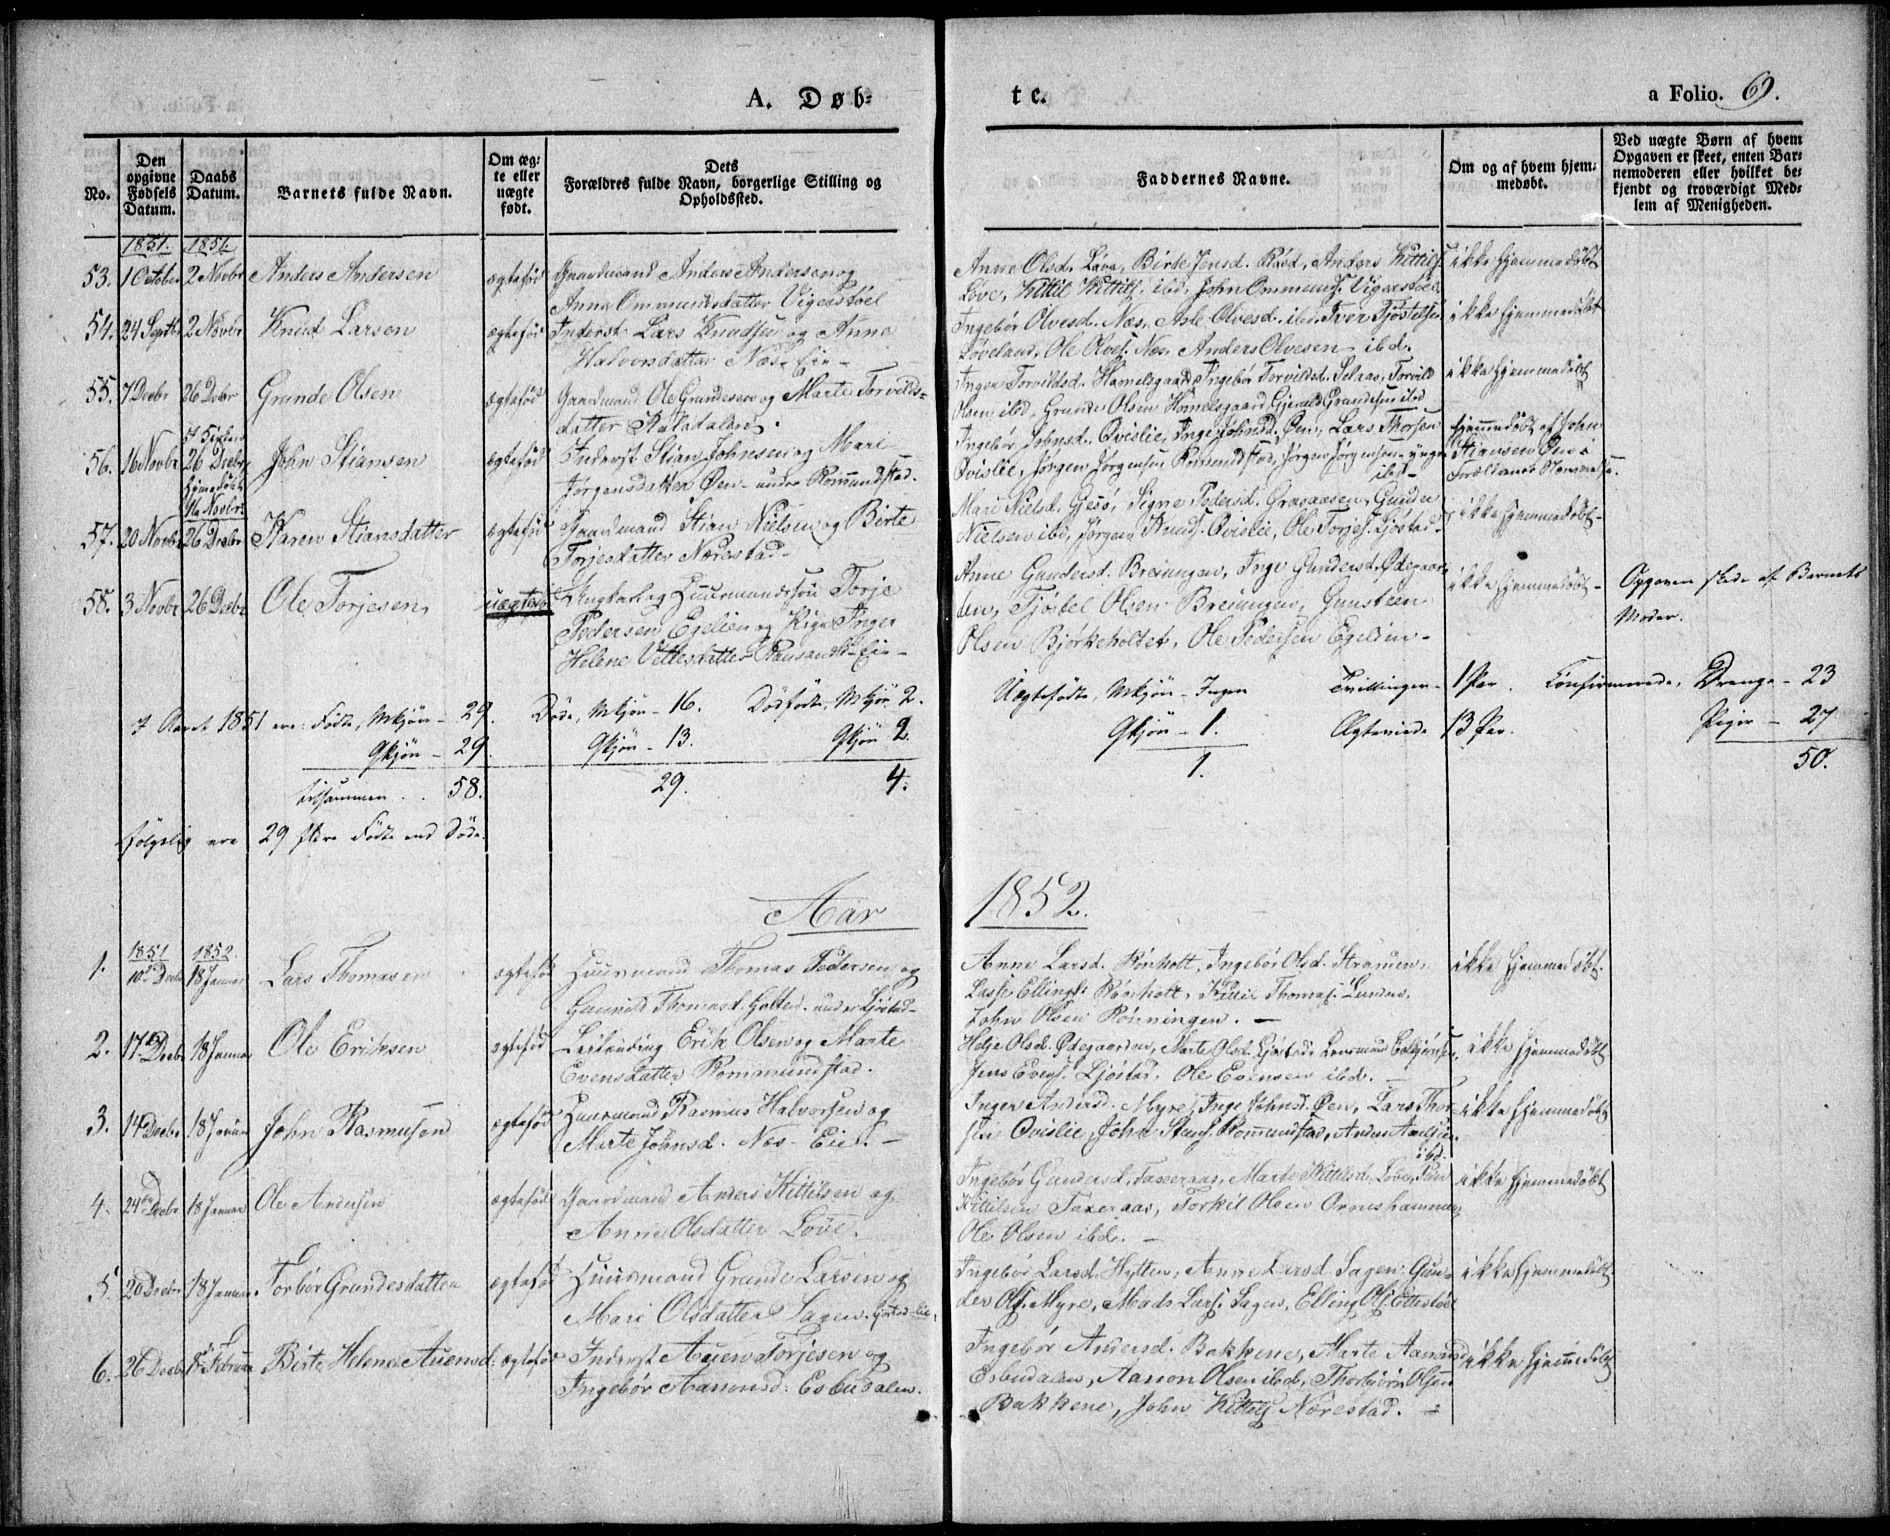 A. Døb=
t e.
a Folio. 69.
No.
Den opgivne Fødsels Datum.
Daabs Datum.
Barnets fulde Navn.
Om æg= te eller uægte født.
Dets Forældres fulde Navn, borgerlige Stilling og Opholdssted.
Faddernes Navne.
Om og af hvem hjem= medøbt.
Ved uægte Børn af hvem Opgaven er skeet, enten Bar= nemoderen eller hvilket be= kjendt og troværdigt Med= lem af Menigheden.
1851. 1851.
53. 1 October 2 Novbr Anders Andersen ægtefød Gaardmand Anders Andersen og
Anne Ommundsdatter Vigerstøel
Anne Olsd. Løve, Birte Jensd. Røed, Anders Kittils.
Løve, Kittil Kittils. ibd. John Ommunds. Vigerstøel
ikke hjemmedøbt
54. 24 Septbr 2 Novbr Knud Larsen ægtefød Inderst Lars Knudsen og Anne
Halvorsdatter Næs-Eie-
Ingebør Olvesd. Næs, Asle Olvesd. ibd. Iver Tjøstelsen
Løveland, Ole Olves. Næs, Anders Olvesen ibd.
ikke hjemmedøbt
55. 7 Decbr 26 Decbr Grunde Olsen ægtefød Gaardmand Ole Grundesen og Marte Torvilds=
datter
Inger Torvildsd. Hamelsgaard, Ingebør Torvildsd. Selaas, Torvild
Olsen ibd, Grunde Olsen Homelsgaard, Gjeruld Grundesen ibid
ikke hjemmedøbt
56. 16 Novbr 26 Decbr John Stiansen ægtefød Inderst Stian Johnsen og Mari
Jørgensdatter Øen- under Rommundstad.
i Kirken
hjemmedøbt
Novbr
Ingebør Johnsd. Qvislie, Inge Johnsd. Øen, Lars Thorsen
Qvislie, Jørgen Jørgensen Romundstad, Jørgen Jørgensen yngre
ibd
hjemmedøbt af John
Stiansen Øen i
Forældrenes Nærværelse.
57. 20 Novbr 26 Decbr Karen Stiansdatter ægtefød Gaardmand Stian Nielsen og Birte
Torjesdatter Nærestad-
Mari Nielsd. Gjesø, Signe Pedersd. Grasaasen, Gunder
Nielsen ibd, Jørgen Knuds. Qvislie, Ole Torjes. Ljøstad-
ikke hjemmedøbt-
58. 3 Novbr 26 Decbr Ole Torjesen uægte Ungkarl og Huusmandssøn Torje
Pedersen Egelien og Pige Inger
Helene Vettesdatter Ramsand-Eie-
Anne Gundersd. Breiungen, Inge Gundersd. Ødegaar=
den, Tjøstel Olsen Breiungen, Gunsteen
Olsen Bjørkeholtet, Ole Pedersen Egelien-
ikke hjemmedøbt-
Opgaven skede af Barnets
Moder.
I Aaret 1851 ere: Fødte, Mkjøn- 29. Døde, Mkjøn- 16. Dødfødte, Mkjøn 2.
Qkjøn- 29. Qkjøn- 13. Qkjøn 2
tilsammen . . 58. 29. 4.
følgelig ere 29 flere Fødte end Døde.
Uægtefødte, Mkjøn- Ingen Tvillinger- 1 Par. Confirmerede, Drenge- 23
Qkjøn- 1. Ægteviede 13 Par. Piger- 27
1. 50.
Aar 1852.
1851 1852.
1. 10de Decbr 18 Januar Lars Thomasen ægtefød Huusmand Thomas Pedersen og
Gunnild Thomasd. Holtet. under Ljøstad-
Anne Larsd. Rønholt, Ingebør Olsd. Strømen,
Lasse Ellings. Rønholt, Thomas. Lunden,
John Olsen Rønningen. -
ikke hjemmedøbt.
2. 17de Decbr 18 Januar Ole Eriksen ægtefød Leilænding Erik Olsen og Marte
Evensdatter Rommundstad.
Helje Olsd. Ødegaarden, Marte Olsd. Ljøstad,
Jens Evens. Ljøstad. Ole Evensen ibd. -
ikke hjemmedøbt
3. 14 Decbr 18 Januar John Rasmusen ægtefød Huusmand Rasmus Halvorsen og
Marte Johnsd. Næs- Eie. -
Inger Andersd. Myre, Inge Johnsd. Øen, Lars Thor=
sen Qvislie, John Rommundstad, Anders
ibd.
ikke hjemmedøbt
4. 24de Decbr 18 Januar Ole Andersen ægtefød Gaardmand Anders Kittilsen og
Anne Olsdatter Løve.
Ingebør Gundersd. Taxeraas, Marte Kittilsd. Løve,
Kittilsen Taxeraas, Torkil Olsen Ormeshammer,
Ole Olsen ibd. -
ikke hjemmedøbt
5. 20 Decbr 18 Januar Torbør Grundesdatter ægtefød Huusmand Grunde Larsen og
Mari Olsdatter Sagen. Ljøstad-Eie.
Ingebør Larsd. Hytten, Anne Larsd. Sagen, Gun=
der Ols. Myre, Mads Lars. Sagen, Elling Ols. Ettestøel
ikke hjemmedøbt
6. 26 Decbr Februar Birte Helene Auensd. ægtefød Inderst Auen Torjesen og
Ingebør Aanonsd. Esbudalen.
Ingebør Andersd. Bakkene, Marte Aanonsd.
Esbudalen, Aanon Olsen ibd, Thorbjørn Olsen
Bakkene, John Kittels Nærestad. -
ikke hjemmedøbt